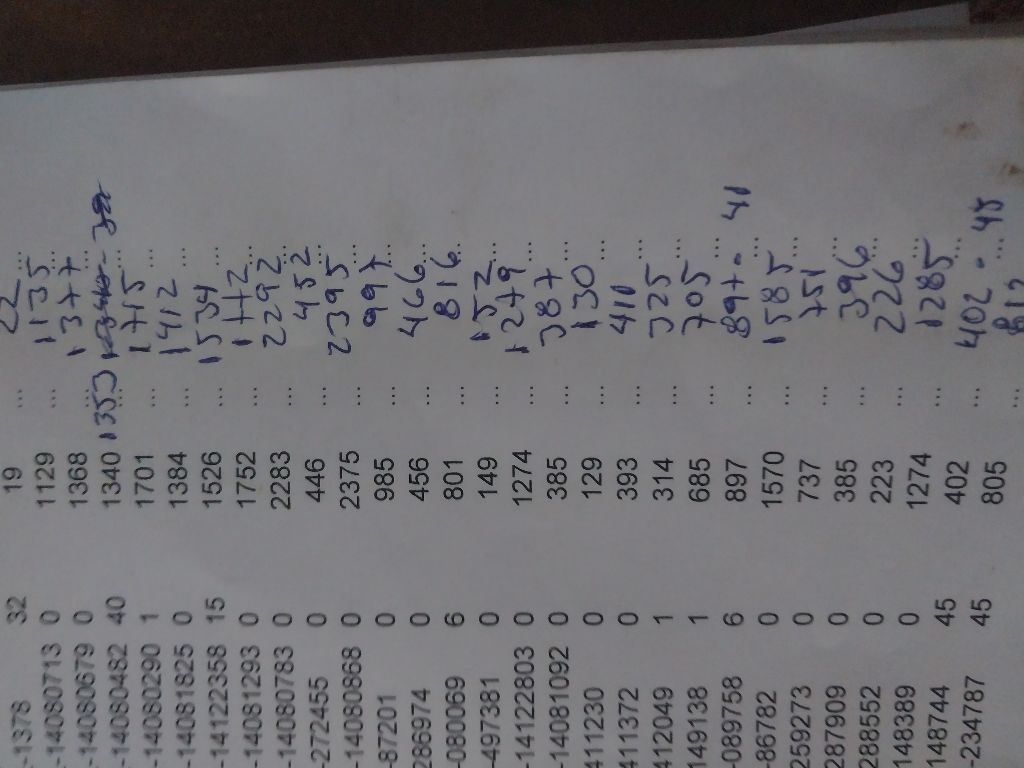 -1378 32 19 ... 22 ...
-14080713 0 1129 ... 1135 ...
-14080679 0 1368 ... 1377 ...
-14080482 40 1340 ... 1353
-14080290 1 1701 ... 1715 ...
-14081825 0 1384 ... 1412 ...
-14122358 15 1526 ... 1534 ...
-14081293 0 1752 ... 1772 ...
-14080783 0 2283 ... 2292 ...
-272455 0 446 ... 452 ...
-14080868 0 2375 ... 2395 ...
-87201 0 985 ... 997 ...
286974 0 456 ... 466 ...
-080069 6 801 ... 816 ...
-497381 0 149 ... 152 ...
-14122803 0 1274 ... 1279 ...
-14081092 0 385 ... 387 ...
411230 0 129 ... 130 ...
411372 0 393 ... 410 ...
412049 1 314 ... 325 ...
149138 1 685 ... 705 ...
-089758 6 897 ... 897 - 41 ...
-86782 0 1570 ... 1585 ...
259273 0 737 ... 751 ...
287909 0 385 ... 396 ...
288552 0 223 ... 226 ...
148389 0 1274 ... 1285 ...
148744 45 402 ... 402 - 45 ...
-234787 45 805 ... 812